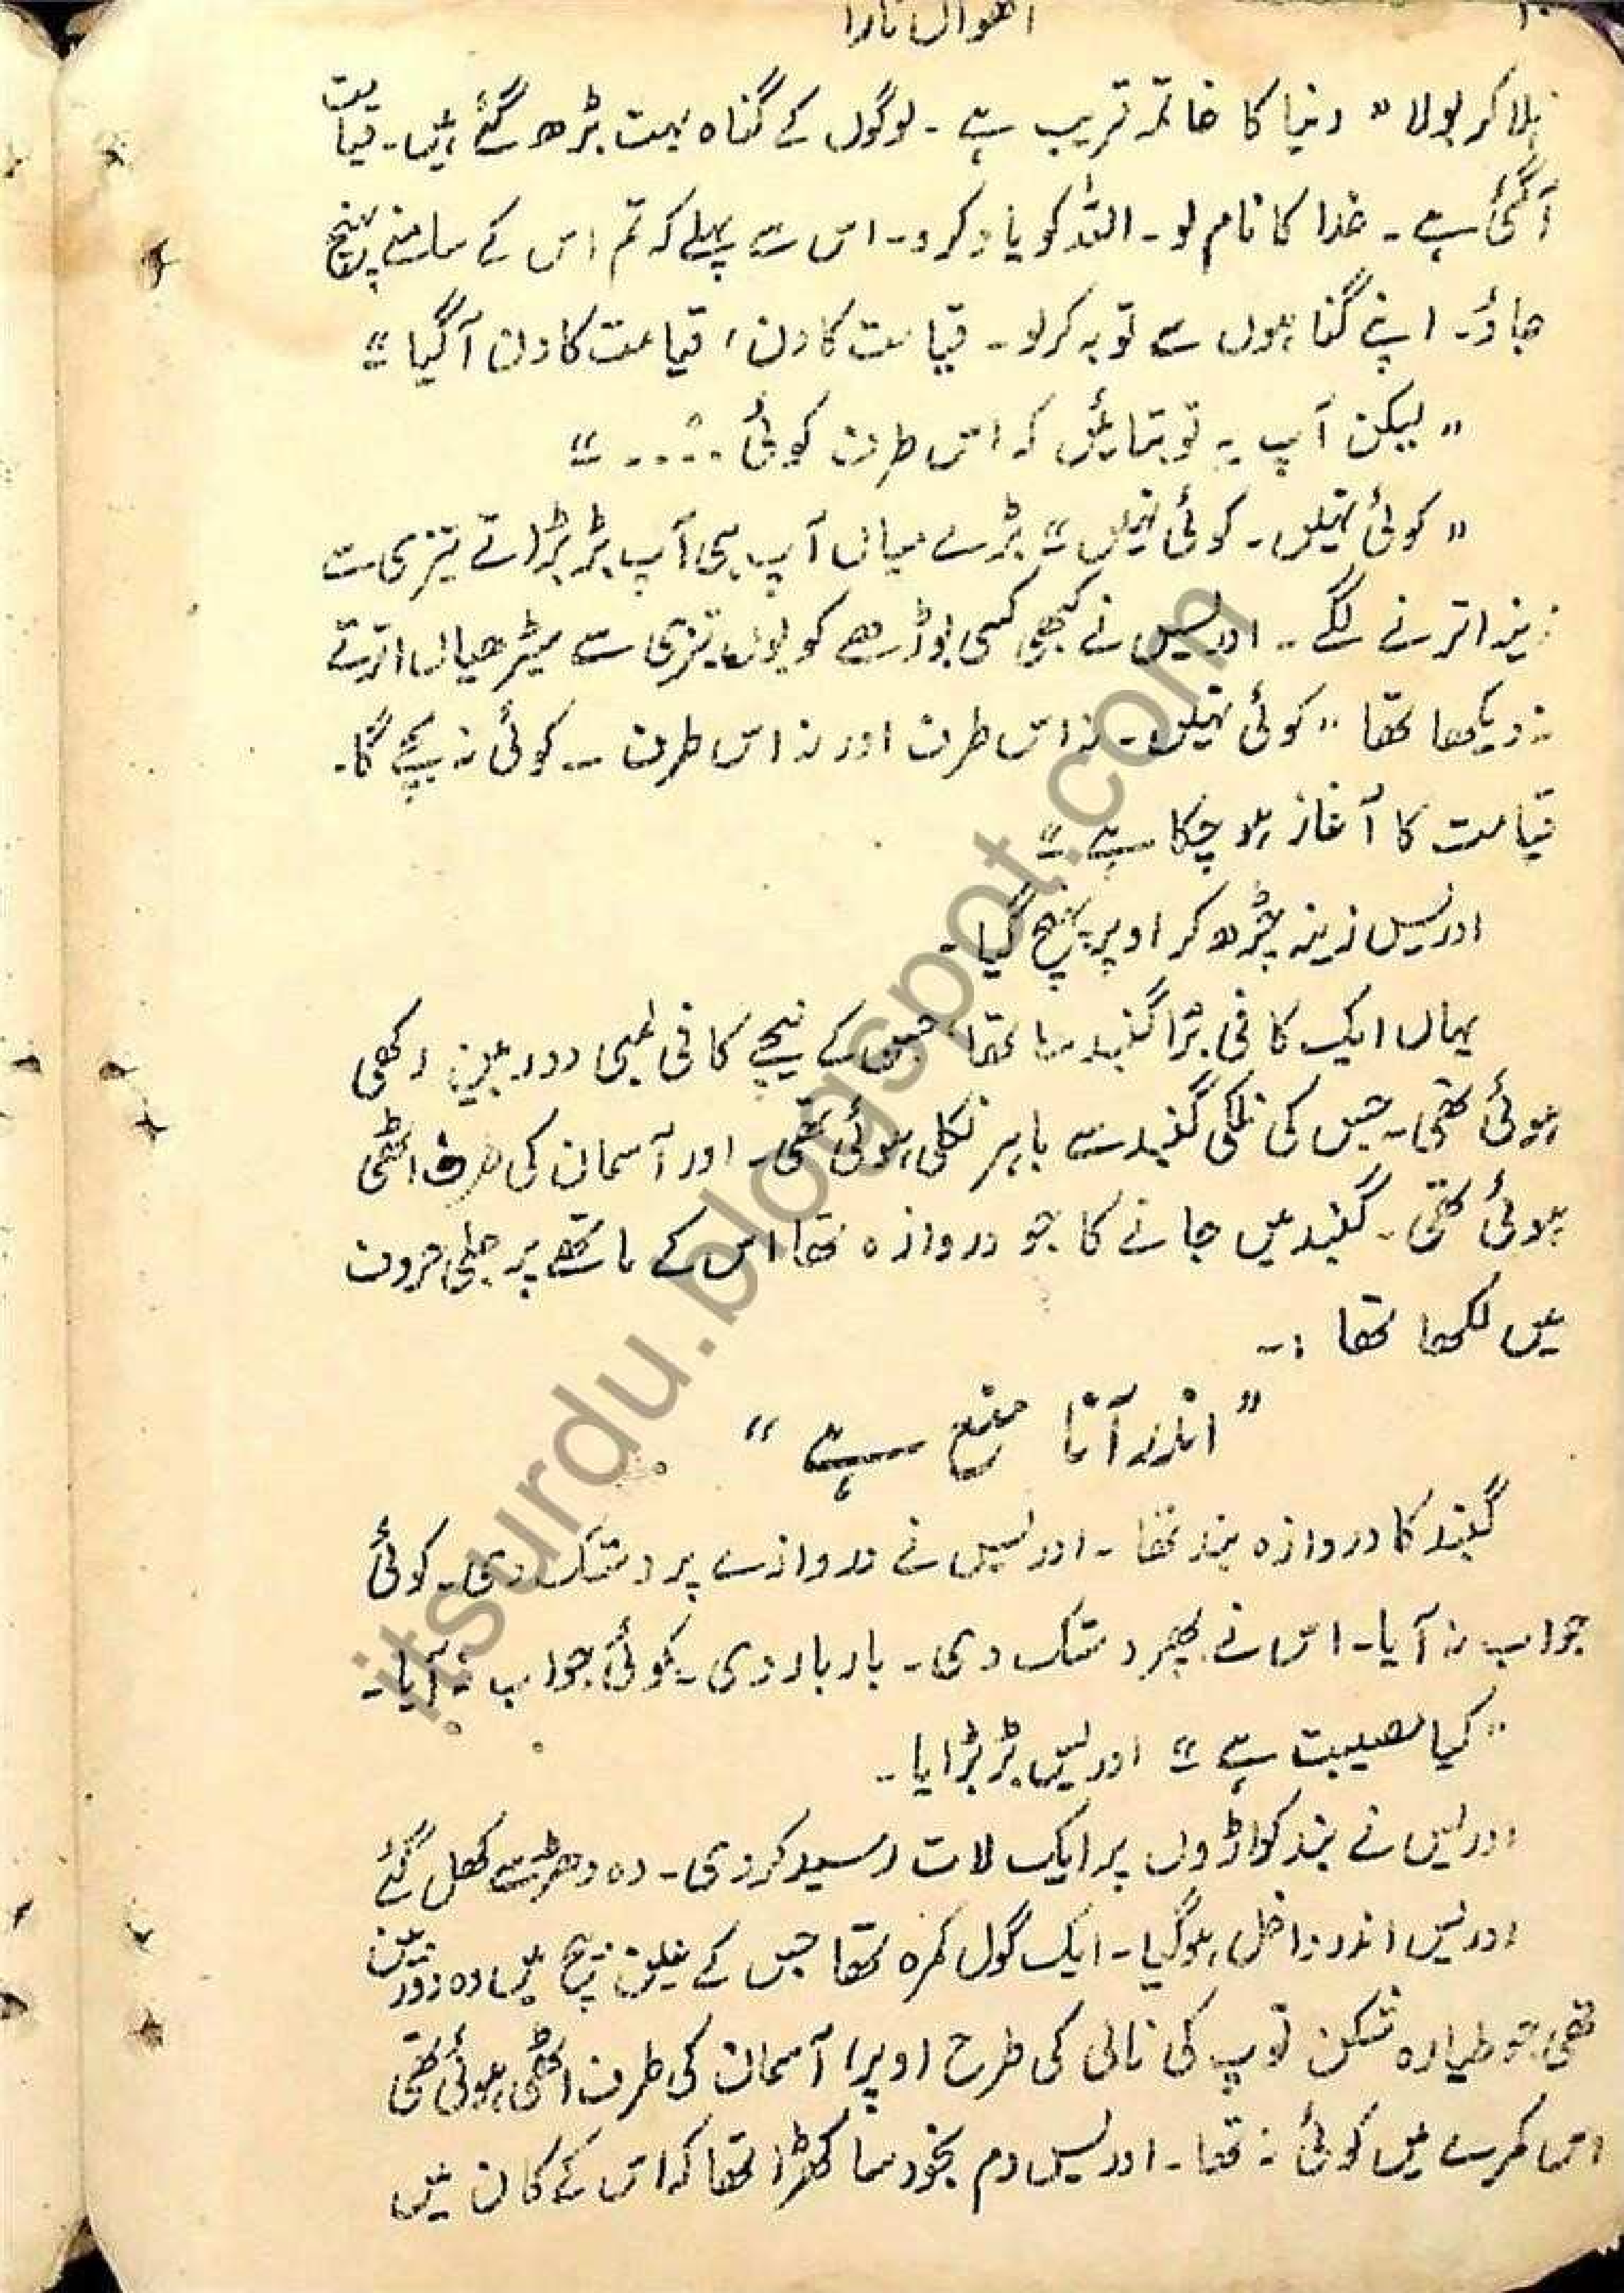 ۱۰
تارا
ہلا کر بولا " دنیا کا خاتمہ قریب ہے ۔ لوگوں کے گناہ بہت بڑھ گئے ہیں۔ قیامت
آگئی ہے ۔ خدا کا نام لو ۔ اللہ کو یاد کرو۔ اس سے پہلے کہ تم اس کے سامنے پہنچ
جاؤ۔ اپنے گناہوں سے توبہ کرلو ۔ قیامت کا دن، قیامت کا دن آگیا "
" لیکن آپ یہ تو بتائیں کہ اس طرف کوئی ۔۔۔۔ "
" کوئی نہیں ۔ کوئی نہیں " بڑے میاں آپ ہی آپ بڑبڑاتے تیزی سے
زینہ اترنے لگے ۔ ادریس نے کبھی کسی بوڑھے کو یوں تیزی سے سیڑھیاں اترتے
نہ دیکھا تھا " کوئی نہیں ۔ نہ اس طرف اور نہ اس طرف ۔ کوئی نہ بچے گا۔
قیامت کا آغاز ہو چکا ہے "
ادریس زینہ چڑھ کر اوپر پہنچ گیا ۔
یہاں ایک کافی بڑا گنبد سا تھا جس کے نیچے کافی لمبی دوربین رکھی
ہوئی تھی۔ جس کی نلکی گنبد سے باہر نکلی ہوئی تھی۔ اور آسمان کی طرف اٹھی
ہوئی تھی ۔ گنبد میں جانے کا جو دروازہ تھا اس کے ماتھے پر جلی حروف
میں لکھا تھا :۔
" اندر آنا منع ہے "
گنبد کا دروازہ بند تھا ۔ ادریس نے دروازے پر دستک دی۔ کوئی
جواب نہ آیا۔ اس نے پھر دستک دی۔ بار بار دی ۔ کوئی جواب نہ آیا۔
" کیا مصیبت ہے " ادریس بڑبڑایا ۔
ادریس نے بند کواڑوں پر ایک لات رسید کردی ۔ وہ دھڑ سے کھل گئے
ادریس اندر داخل ہوگیا ۔ ایک گول کمرہ تھا جس کے عین بیچ میں وہ دوربین
تھی جو طیارہ شکن توپ کی نالی کی طرح اوپر، آسمان کی طرف اٹھی ہوئی تھی
اس کمرے میں کوئی نہ تھا ۔ ادریس دم بخود سا کھڑا تھا کہ اس کے کان میں
itsurdu.blogspot.com